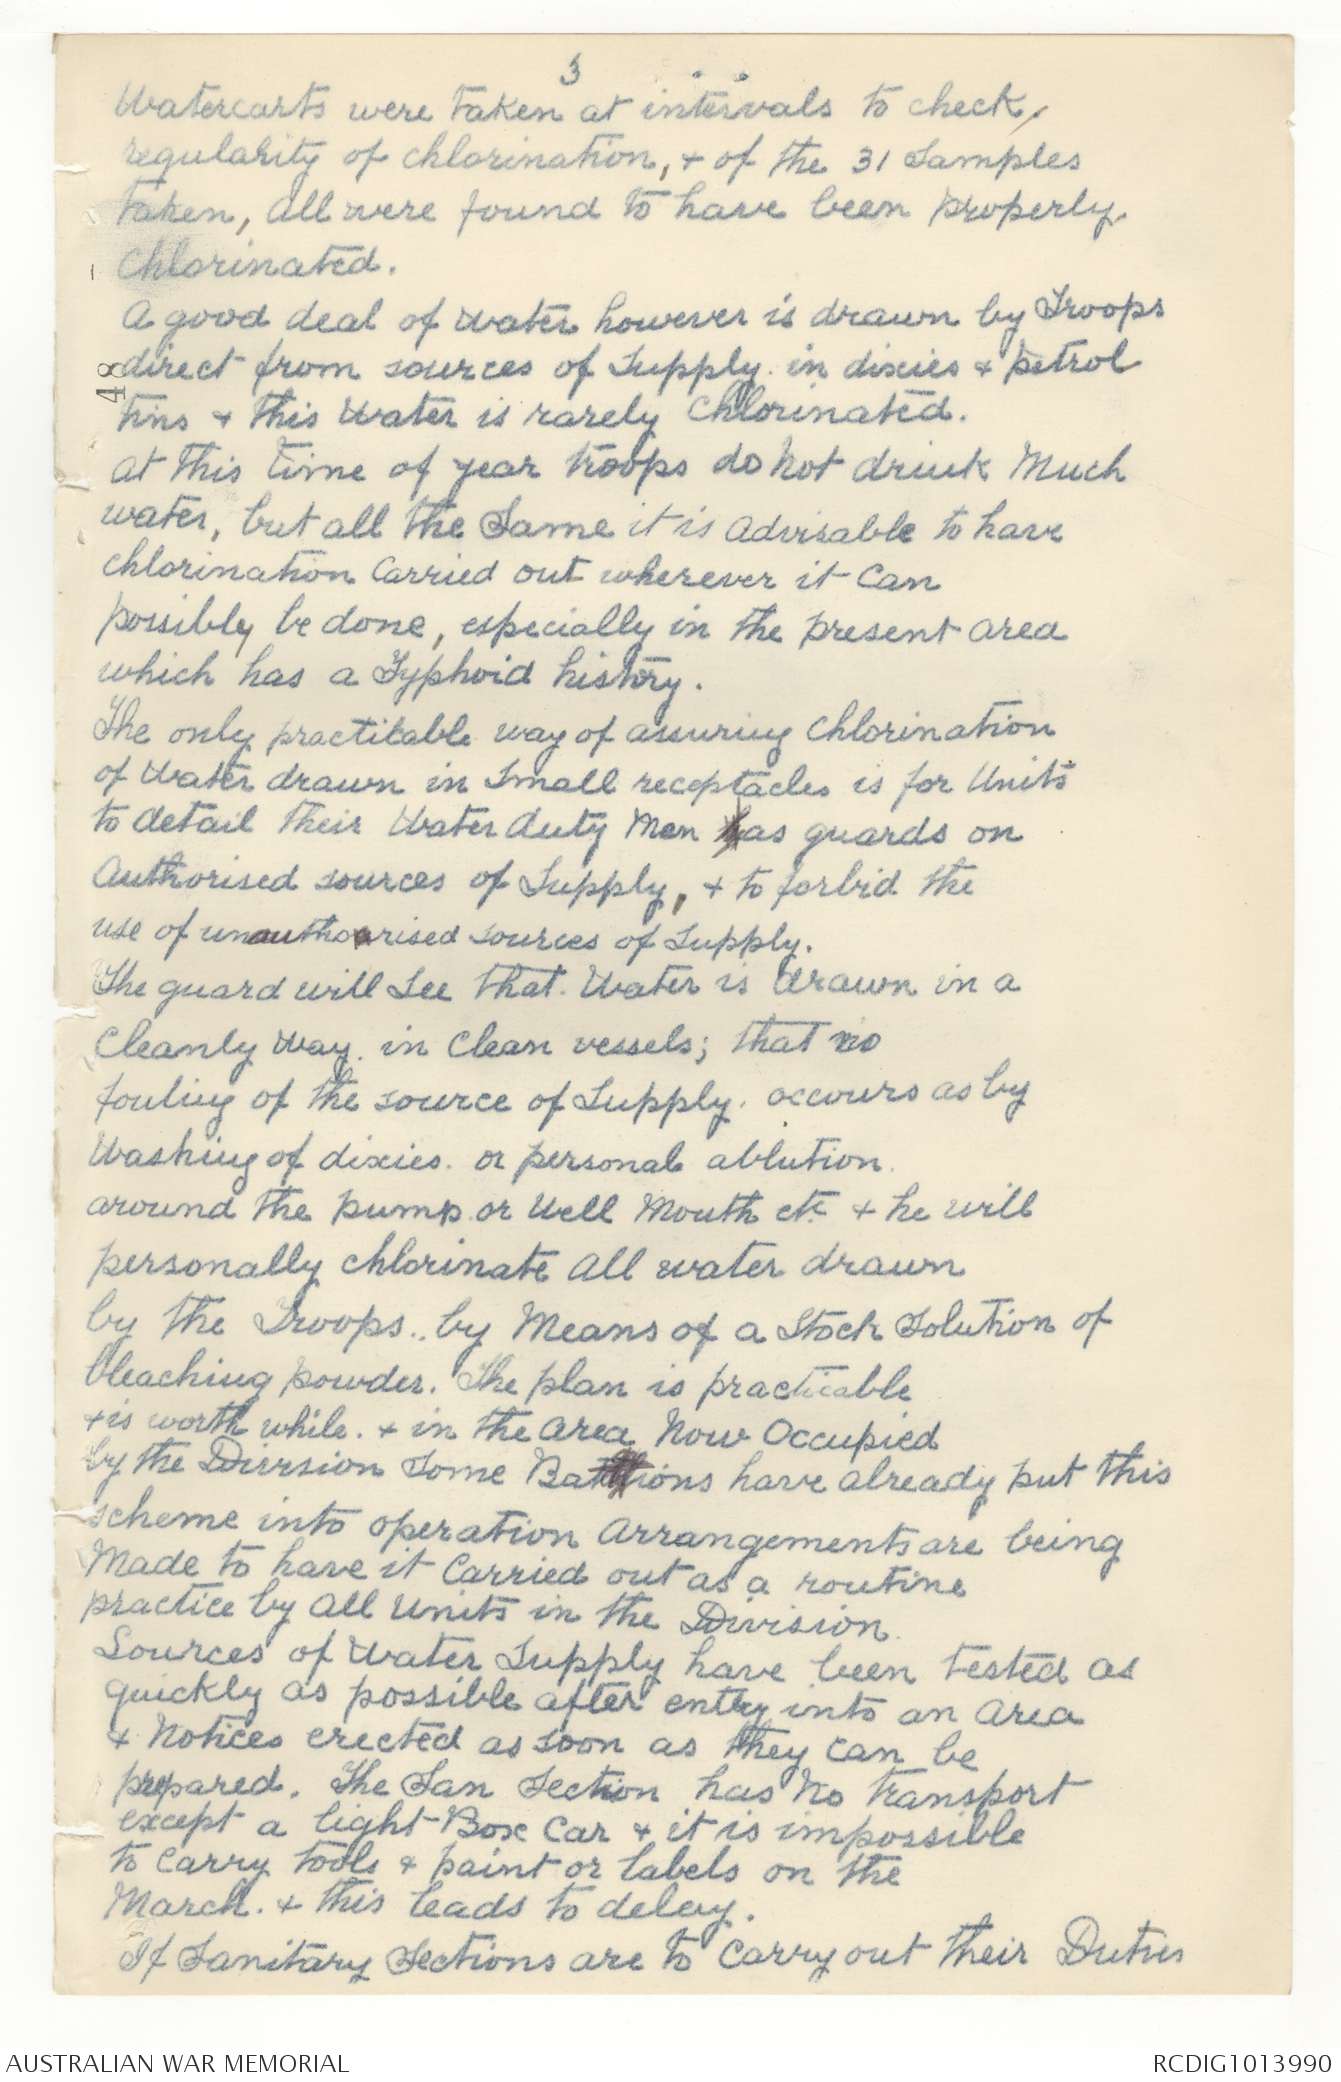 3
Watercarts were taken at intervals to check,
regularity of chlorination, + of the 31 Samples
taken, all were found to have been properly
chlorinated.
A good deal of water however is drawn by Troops
direct from sources of Supply. in dixies + petrol
tins + this Water is rarely Chlorinated.
48
At this time of year troops do not drink Much
water, but all the Same it is advisable to have
chlorination Carried out wherever it Can
possibly be done, especially in the present area
which has a Typhoid history.
The only practicable way of assuring Chlorination
of Water drawn in Small receptacles is for Units
to detail their Water duty Men as guards on
Authorised sources of Supply, + to forbid the
use of unauthorised sources of Supply.
The guard will See that Water is drawn in a
Cleanly Way. in Clean vessels; that no
fouling of the source of Supply. occours as by
Washing of dixies. or personal ablution.
around the pump or Well Mouth etc + he will
personally chlorinate All water drawn
by the Troops.. by Means of a Stock Solution of
bleaching powder. The plan is practicable
+ is worth while. + in the Area Now Occupied
by the Division Some Battions have already put this
scheme into operation Arrangements are being
Made to have it Carried out as a routine
practice by All Units in the Division.
Sources of Water Supply have been tested as
quickly as possible after entry into an Area
+ Notices erected as soon as they can be
prepared. The San Section has No transport
except a light Box Car + it is impossible
to Carry tools + paint or labels on the
March. + this leads to delay.
If Sanitary Sections are to Carry out their Duties
AUSTRALIAN WAR MEMORIAL
RCDIG1013990